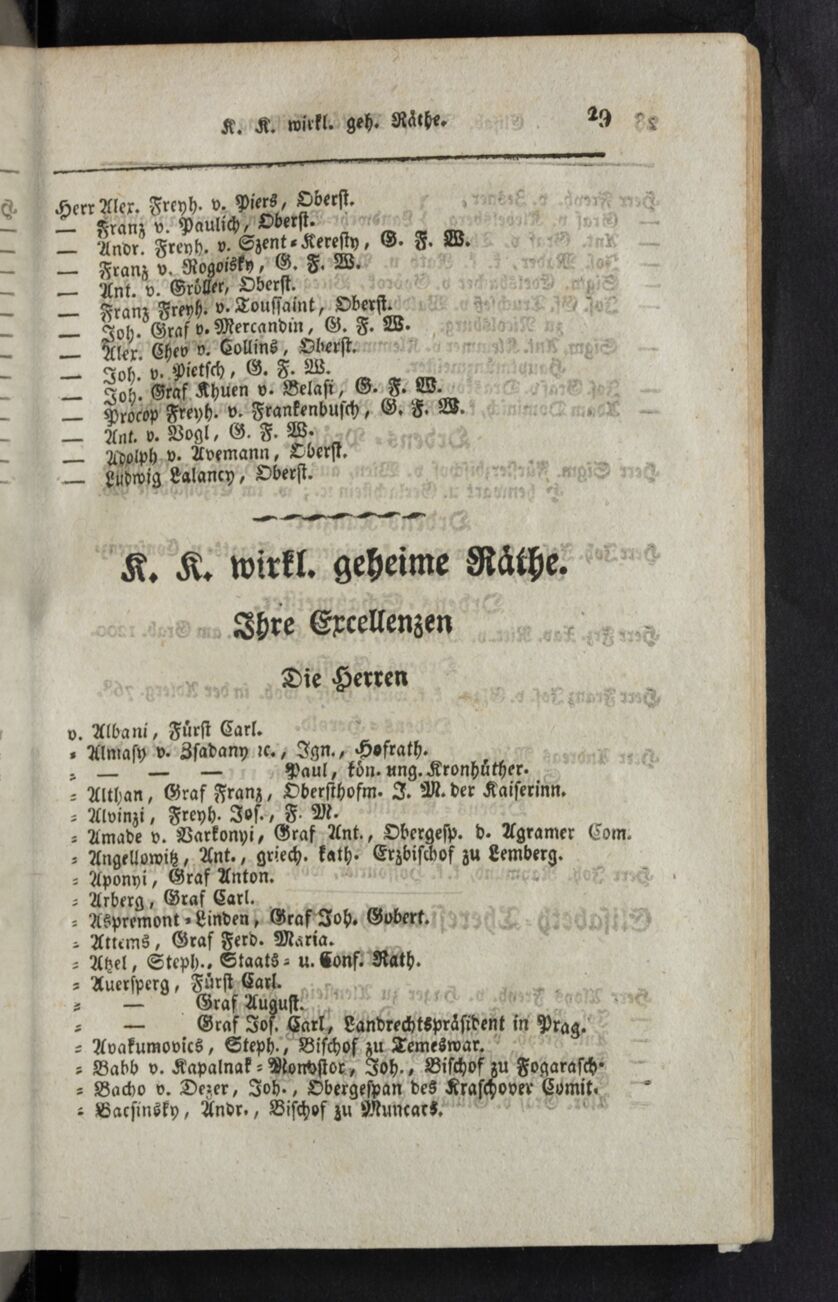 K. K. wirkl. geh. Räthe. 29
Herr Alex. Freyh. v. Piers, Oberst.
— Franz v. Paulich, Oberst.
— Andr. Freyh. v. Szent-Keresty, G. F. W.
— Franz v. Rogoisky, G. F. W.
— Ant. v. Gröller, Oberst.
— Franz Freyh. v. Toussaint, Oberst.
— Joh. Graf v. Mercandin, G. F. W.
— Alex. Chev v. Collins, Oberst.
— Joh. v. Pietsch, G. F. W.
— Joh. Graf Khuen v. Belasi, G. F. W.
— Procop Freyh. v. Frankenbusch, G. F. W.
— Ant. v. Vogl, G. F. W.
— Adolph v. Avemann, Oberst.
— Ludwig Lalancy, Oberst.
K. K. wirkl. geheime Räthe.
Ihre Excellenzen
Die Herren
v. Albani, Fürst Carl.
= Almasy v. Zsadany ꝛc., Ign., Hofrath.
= — — — Paul, kön. ung. Kronhüther.
= Althan, Graf Franz, Obersthofm. J. M. der Kaiserinn.
= Alvinzi, Freyh. Jos., F. M.
= Amade v. Varkonyi, Graf Ant., Obergesp. d. Agramer Com.
= Angellowitz, Ant., griech. kath. Erzbischof zu Lemberg.
= Aponyi, Graf Anton.
= Arberg, Graf Carl.
= Aspremont=Linden, Graf Joh. Gobert.
= Attems, Graf Ferd. Maria.
= Atzel, Steph., Staats= u. Conf. Rath.
= Auersperg, Fürst Carl.
= — Graf August.
= — Graf Jos. Carl, Landrechtspräsident in Prag.
= Avakumovics, Steph., Bischof zu Temeswar.
= Babb v. Kapalnak=Monostor, Joh., Bischof zu Fogarasch.
= Bacho v. Dezer, Joh., Obergespan des Kraschover Comit.
= Bacsinsky, Andr., Bischof zu Muncacs.